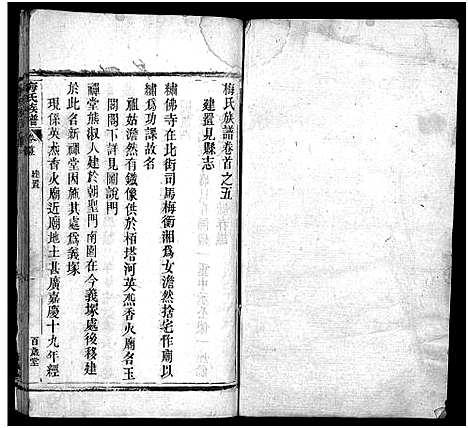 梅氏族譜卷首之五
建置見縣志
繡佛寺在北街司馬梅衡湘爲女澹然捨宅作廟以
繡爲功課故名
祖姑澹然有鐵像供於栢塔河英烝香火廟名玉
閣閣下詳見圖說門
禪堂族叔人建於朝聖門南園在今義塚處後移建
於此名新禪堂因施其處爲義塚
現係英烝香火廟近廟地土甚廣嘉慶十九年經
梅氏族譜
建置
百歲堂